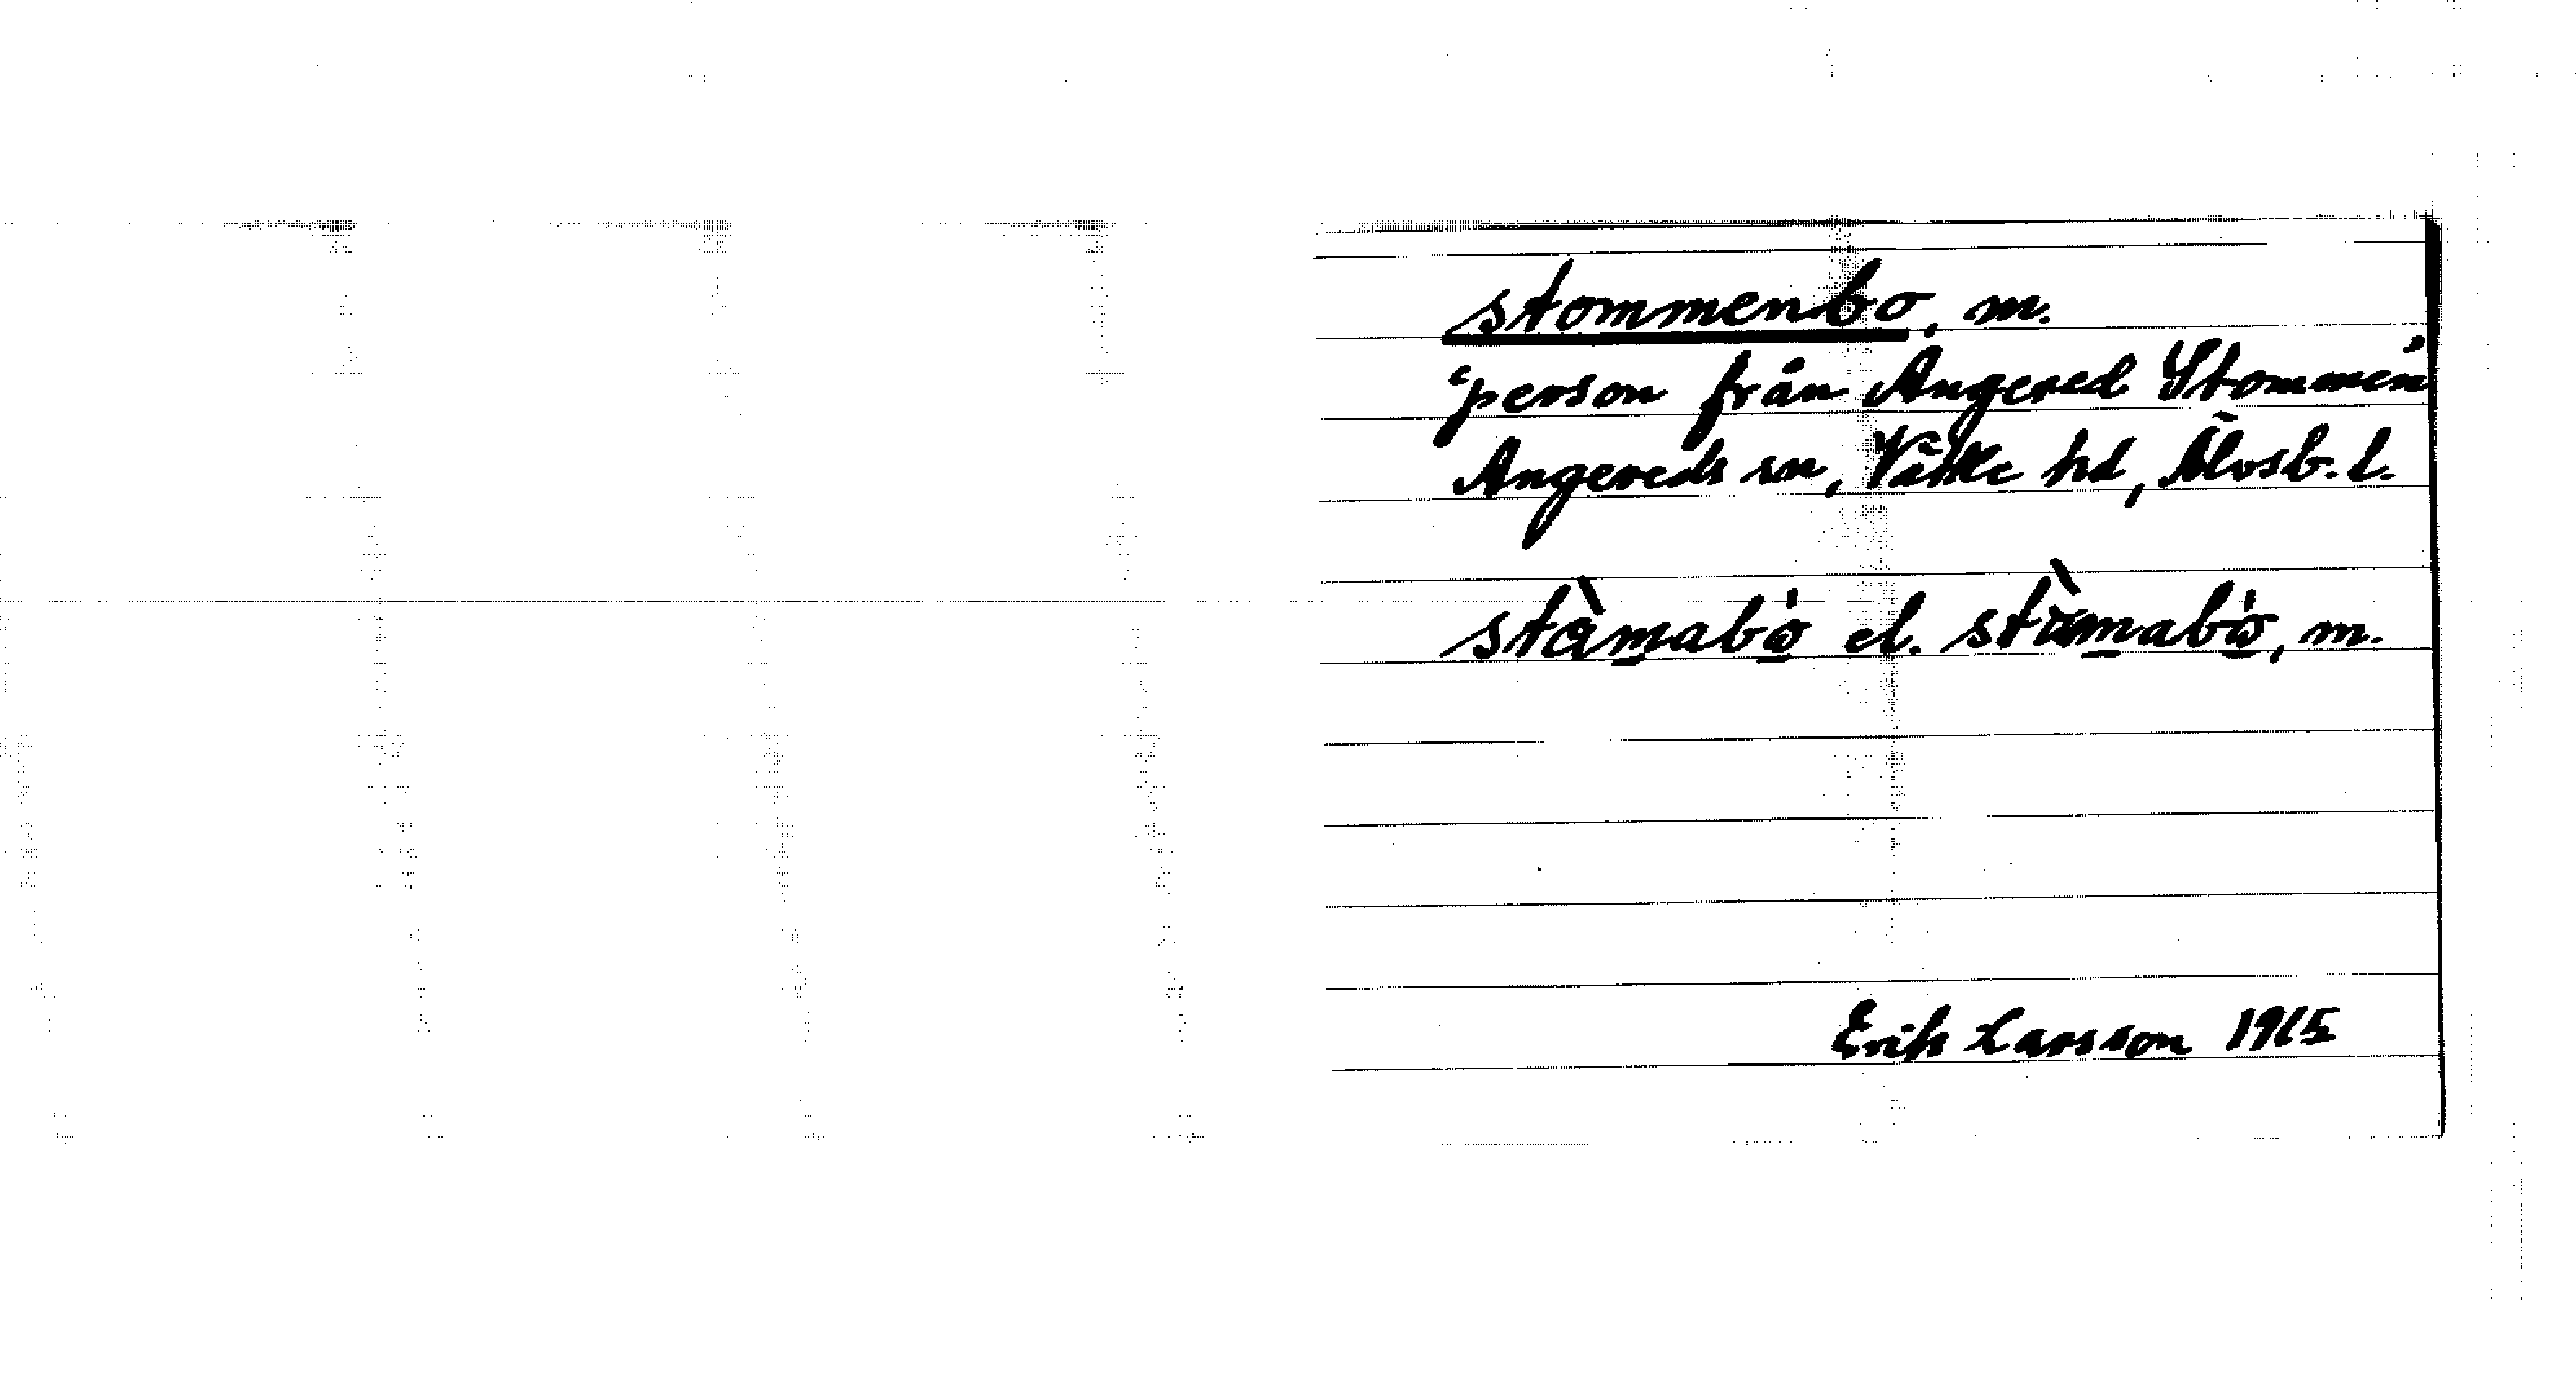 stommenbo, m.
‘person från Angered Stommen’
Angereds sn, Vättle hd, Älvsb. l.
el. , m.
Erik Larsson 1965